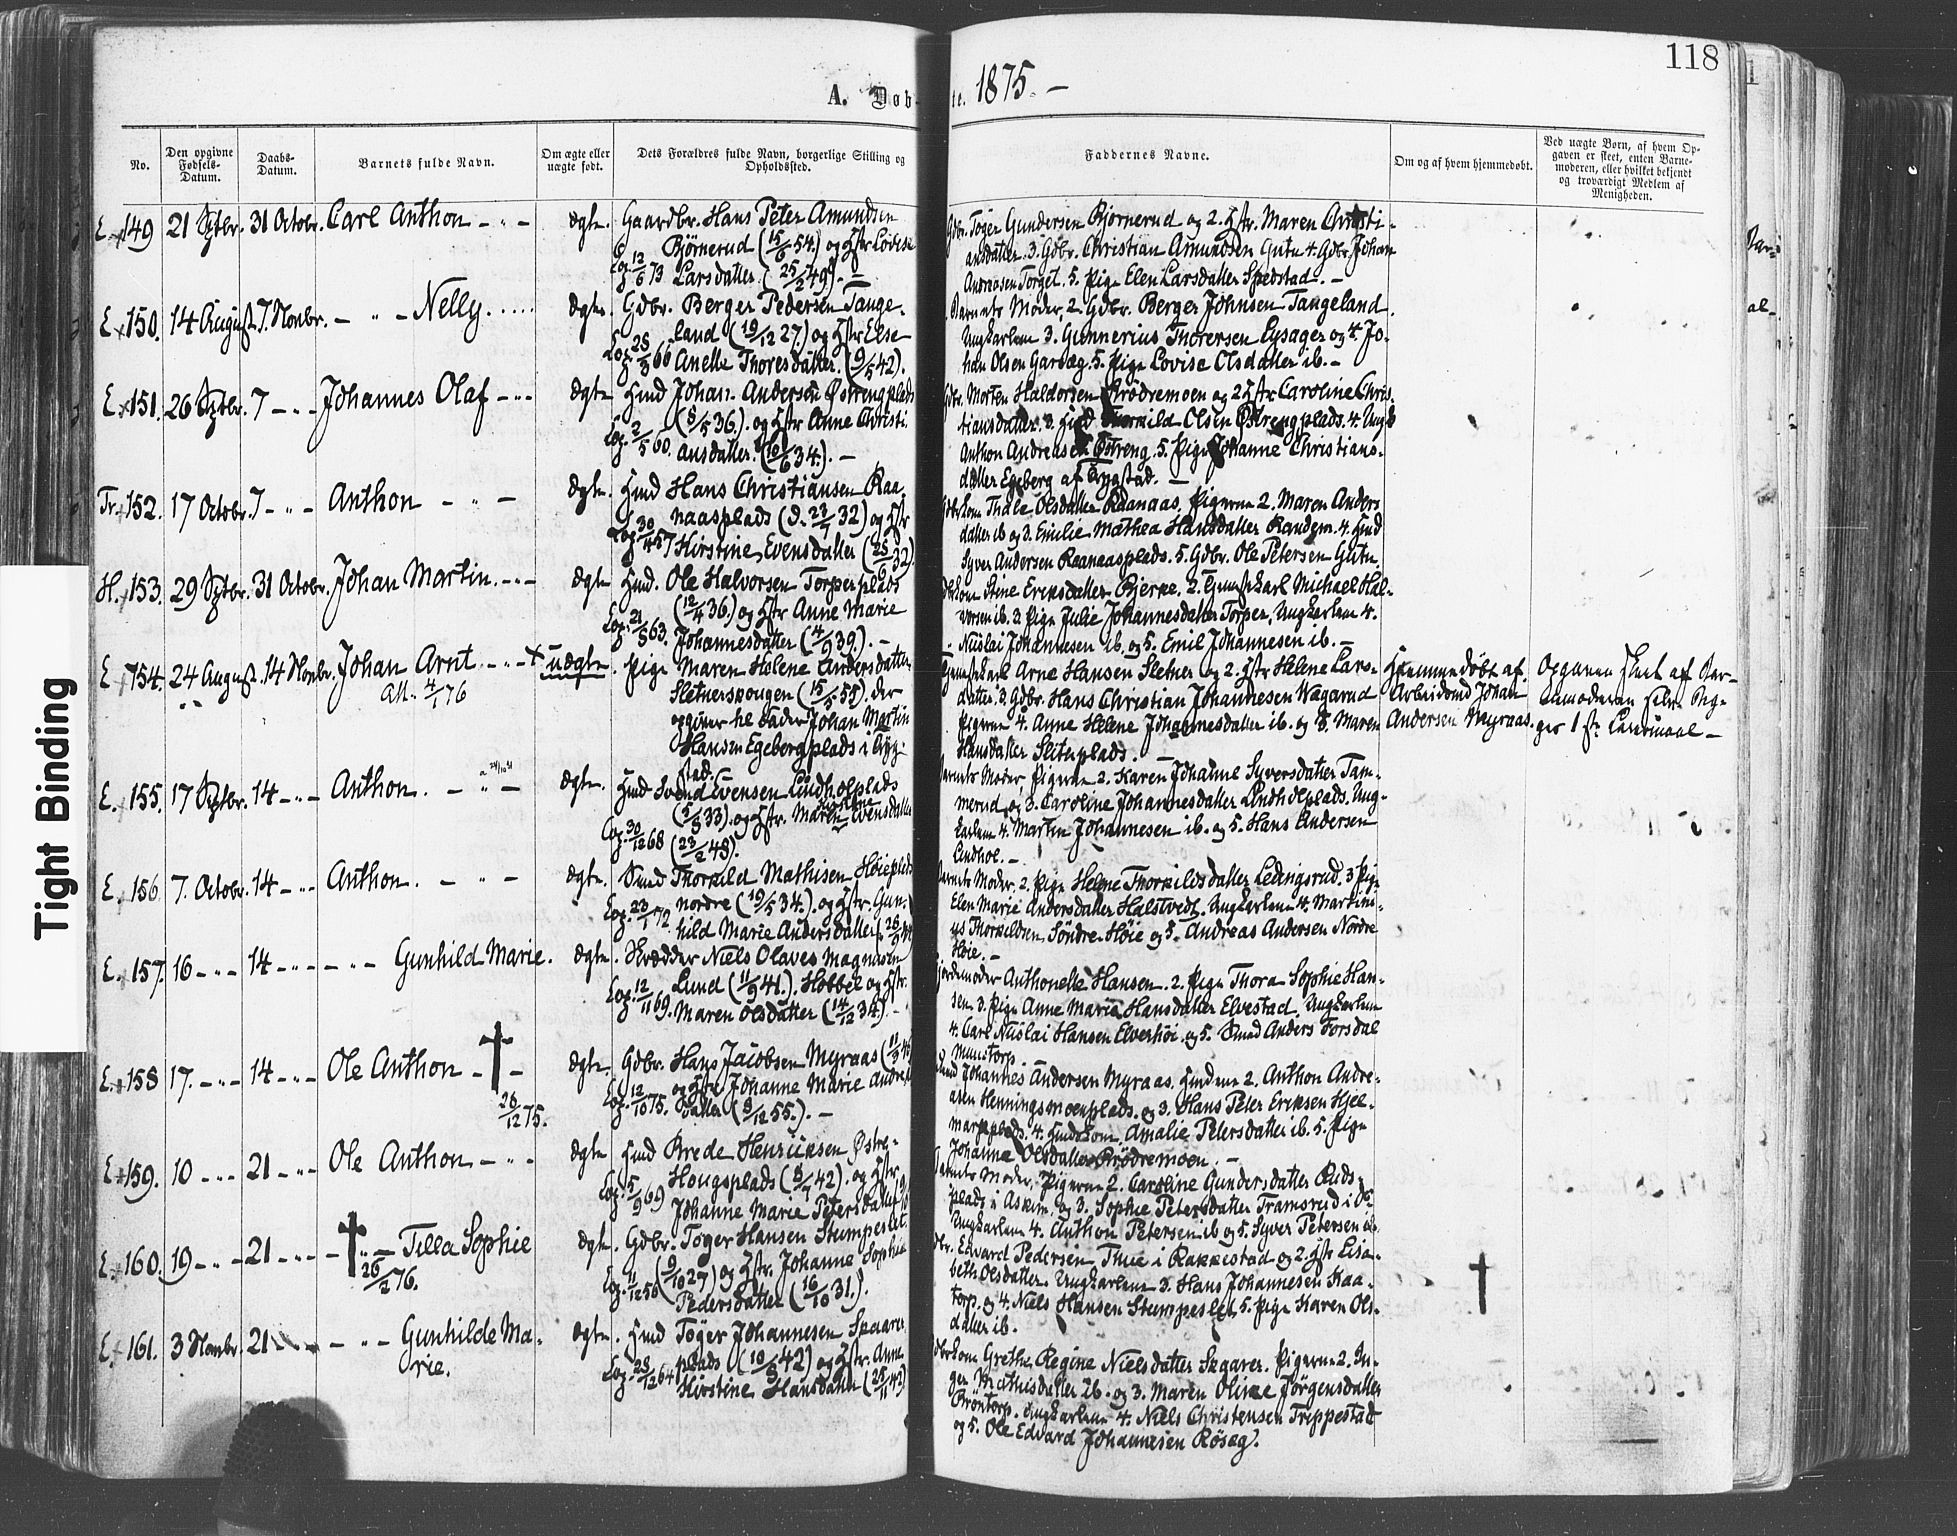 118
A. Døb-
te. 1875. –
Tight Binding
No.
Den opgivne Fødsels-Datum.
Daabs-Datum.
Barnets fulde Navn.
Om ægte eller uægte født.
Dets Forældres fulde Navn, borgerlige Stilling og Opholdssted.
Faddernes Navne.
Om og af hvem hjemmedøbt.
Ved uægte Børn, af hvem Op-
gaven er skeet, enten Barne-
moderen, eller hvilket bekjendt
og troværdigt Medlem af
Menigheden.
E. 149 21 Sptbr. 31 Octobr. Carl Anthon ægte. Gaardbr. Hans Peter Amundsen
Bjørnerud (15/6 54.) og Hstr Lovise
Cop. 12/6 73 Larsdatter. (25/2 49). –
Gdbr. Tøger Gundersen Bjørnerud og 2. Hstr. Maren Christi-
ansdatter. 3. Gdbr. Christian Amundsen Gutu 4. Gdbr. Johan
Andreasen Torget. 5. Pige Elen Larsdatter Spedstad. –
E. 150. 14 August. 7. Novbr. Nelly. ægte. Gdbr. Berger Pedersen Tange-
land (19/12 27.) og Hstr Else
Anette Thoresdatter. (9/5 42).
Barnets Moder, 2. Gdbr. Berger Johnsen Tangeland.
Ungkarlene 3. Gunnerius Thorersen Lysager og 4. Jo-
han Olsen Garsæg. 5. Pige Lovise Olsdatter ib. –
E. 151. 26 Sptbr. 7 Johannes Olaf ægte. Hmd Johan Andersen Østrengplads
(8/5 36.) og Hstr Anne Christi-
Cop. 2/5 60. ansdatter. (10/6 34.). –
Gdbr. Morten Haldorsen Brødremoen og 2 Hstr Caroline Chris-
tiansdatter. 3. Hmd Thorkild Olsen Østrengplads. 4. Ungk
Anthon Andreasen Østreng. 5. Pige Johanne Christians-
datter Egeberg af Trygstad. –
Tr. 152. 17 Octobr. 7 Anthon ægte. Hmd Hans Christiansen Raa-
naasplads (d. 23/7 32) og Hstr
Kirstine Evensdatter (25/6 32).
Gdbrkone Thale Olsdatter Raanaas, Pigerne 2. Maren Anders
datter ib og 3. Emilie Mathea Hansdatter Randem. 4. Hmd
Syver Andersen Raanaasplads. 5. Gdbr. Ole Petersen Gutu.
H. 153. 29 Sptbr. 31 Octobr. Johan Martin. ægte Hmd. Ole Halvorsen Torperplads
(12/4 36.) og Hstr Anne Marie
Cop. 21/5 63. Johannesdatter (4/9 39.). –
Stine Eriksdatter Bjerke. 2. Michael Hal-
vorsen ib. 3. Pige Julie Johannesdatter Torper, Ungkarlene 4.
Nicolai Johannesen ib. og 5. Emil Johannesen ib. –
E 154. 24 August. 14 Novbr. Johan Arnt. uægte. Pige Maren Helene Andersdatter
Att. 4/1 76
Sletnerskougen (15/5 55). der
opgiver til Fader Johan Martin
Hansen Egebergplads i Tryg-
stad.
Arne Hansen Sletner og 2. Hstr Helene Lars-
datter. 3. Gdbr. Hans Christian Johannesen Wagarud
Pigerne 4. Anne Helene Johannesdatter ib. og 5. Maren
Hansdatter Slituplads. –
Hjemmedøbt af
Arbeidsmd Johan
Andersen Myraas.
Opgaven skeet af Bar-
nemoderen
Lensmaal –
E. 155. 17 Sptbr. 14 Anthon. ægte. Hmd Svend Evensen Lindholplads
(5/8 33). og Hstr. Maren Evensdatter
Cop. 30/12 68 (23/2 48).
Barnets Moder, Pigerne 2. Karen Johanne Syversdatter Tam-
merud og 3. Caroline Johannesdatter Lindholplads. Ung-
karlene 4. Martin Johannesen ib. og 5. Hans Andersen
Lindhol. –
E. 156 7. Octobr. 14 Anthon. ægte. Smed Thorkild Mathisen Høieplads
nordre (19/5 34.). og Hstr. Gun-
hild Marie Andersdatter
Barnets Moder. 2. Pige Helene Thorkildsdatter Ledingsrud. 3 Pige
Elen Marie Andersdatter Halstvedt. Ungkarlene 4. Martini-
us Thorkildsen Søndre Høie og 5. Andreas Andersen Nordre
Høie. –
E. 157. 16 14 Gunhild Marie. ægte. Skrædder Niels Olaves Magnusen
Lund (11/9 41.). Hobbel og Hstr.
Cop. 12/11 69. Maren Olsdatter (14/12 34). –
Jordemoder Anthonette Hansen. 2. Pige Thora Sophie Han-
sen. 3. Pige Anne Marie Hansdatter Elvestad. Ungkarlene
4. Carl Nicolai Hansen Elverhøi. og 5. Smed Anders Forsdal
E. 158 17. 14 Ole Anthon † ægte. Gdbr. Hans Jacobsen Myraas
26/12 75.
og Hstr Johanne Marie Andreas
Cop. 12/10 75. datter (9/12 55.). –
Johannes Andersen Myraas. Hmdene 2. Anthon Andre-
asen Henningsmoenplads. og 3. Hans Peter Eriksen Hjel-
markplads. 4. Hmdskone, Amalie Petersdatter ib. 5. Pige
Johanne Olsdatter Brødremoen. –
E. 159. 10 21 Ole Anthon ægte Hmd Brede Henriksen Østre-
Hougsplads (8/7 42). og Hstr.
Cop. 5/9 69 Johanne Marie Petersdatter
Barnets Moder, Pigerne 2. Caroline Gundersdatter Ruds-
plads i Askim. og 3. Sophie Petersdatter Tramsrud i do.
Ungkarlene 4. Anthon Petersen ib og 5. Syver Petersen ib.
E. 160. 19 21 † Tilla Sophie ægte. Gdbr. Tøger Hansen Stumpeslet.
26/2 76.
(9/10 27) og Hstr. Johanne Sophie
Cop. 11/12 56 Pedersdatter (16/10 31.).
Gdbr. Edvard Pedersen Thue i Rakkestad og 2. Hstr Lisa-
beth Olsdatter. Ungkarlene 3. Hans Johannesen Kaa-
torp. og 4. Niels Hansen Stumpeslet. 5. Pige Karen Ols-
datter ib.
†
E. 161. 3 Novbr. 21 Gunhilde Ma-
rie.
ægte. Hmd Tøger Johannesen Skaarer
plads (10/9 42) og Hstr. Anne
Cop. 28/12 64 Kirstine Hansdatter
Grethe Regine Nielsdatter Skaarer. Pigerne 2. In-
ger Mathisdatter ib. og 3. Maren Oline Jørgensdatter
Brøntorp. Ungkarlene 4. Niels Christensen Trippestad
og 5. Ole Edvard Johannesen Røsæg.